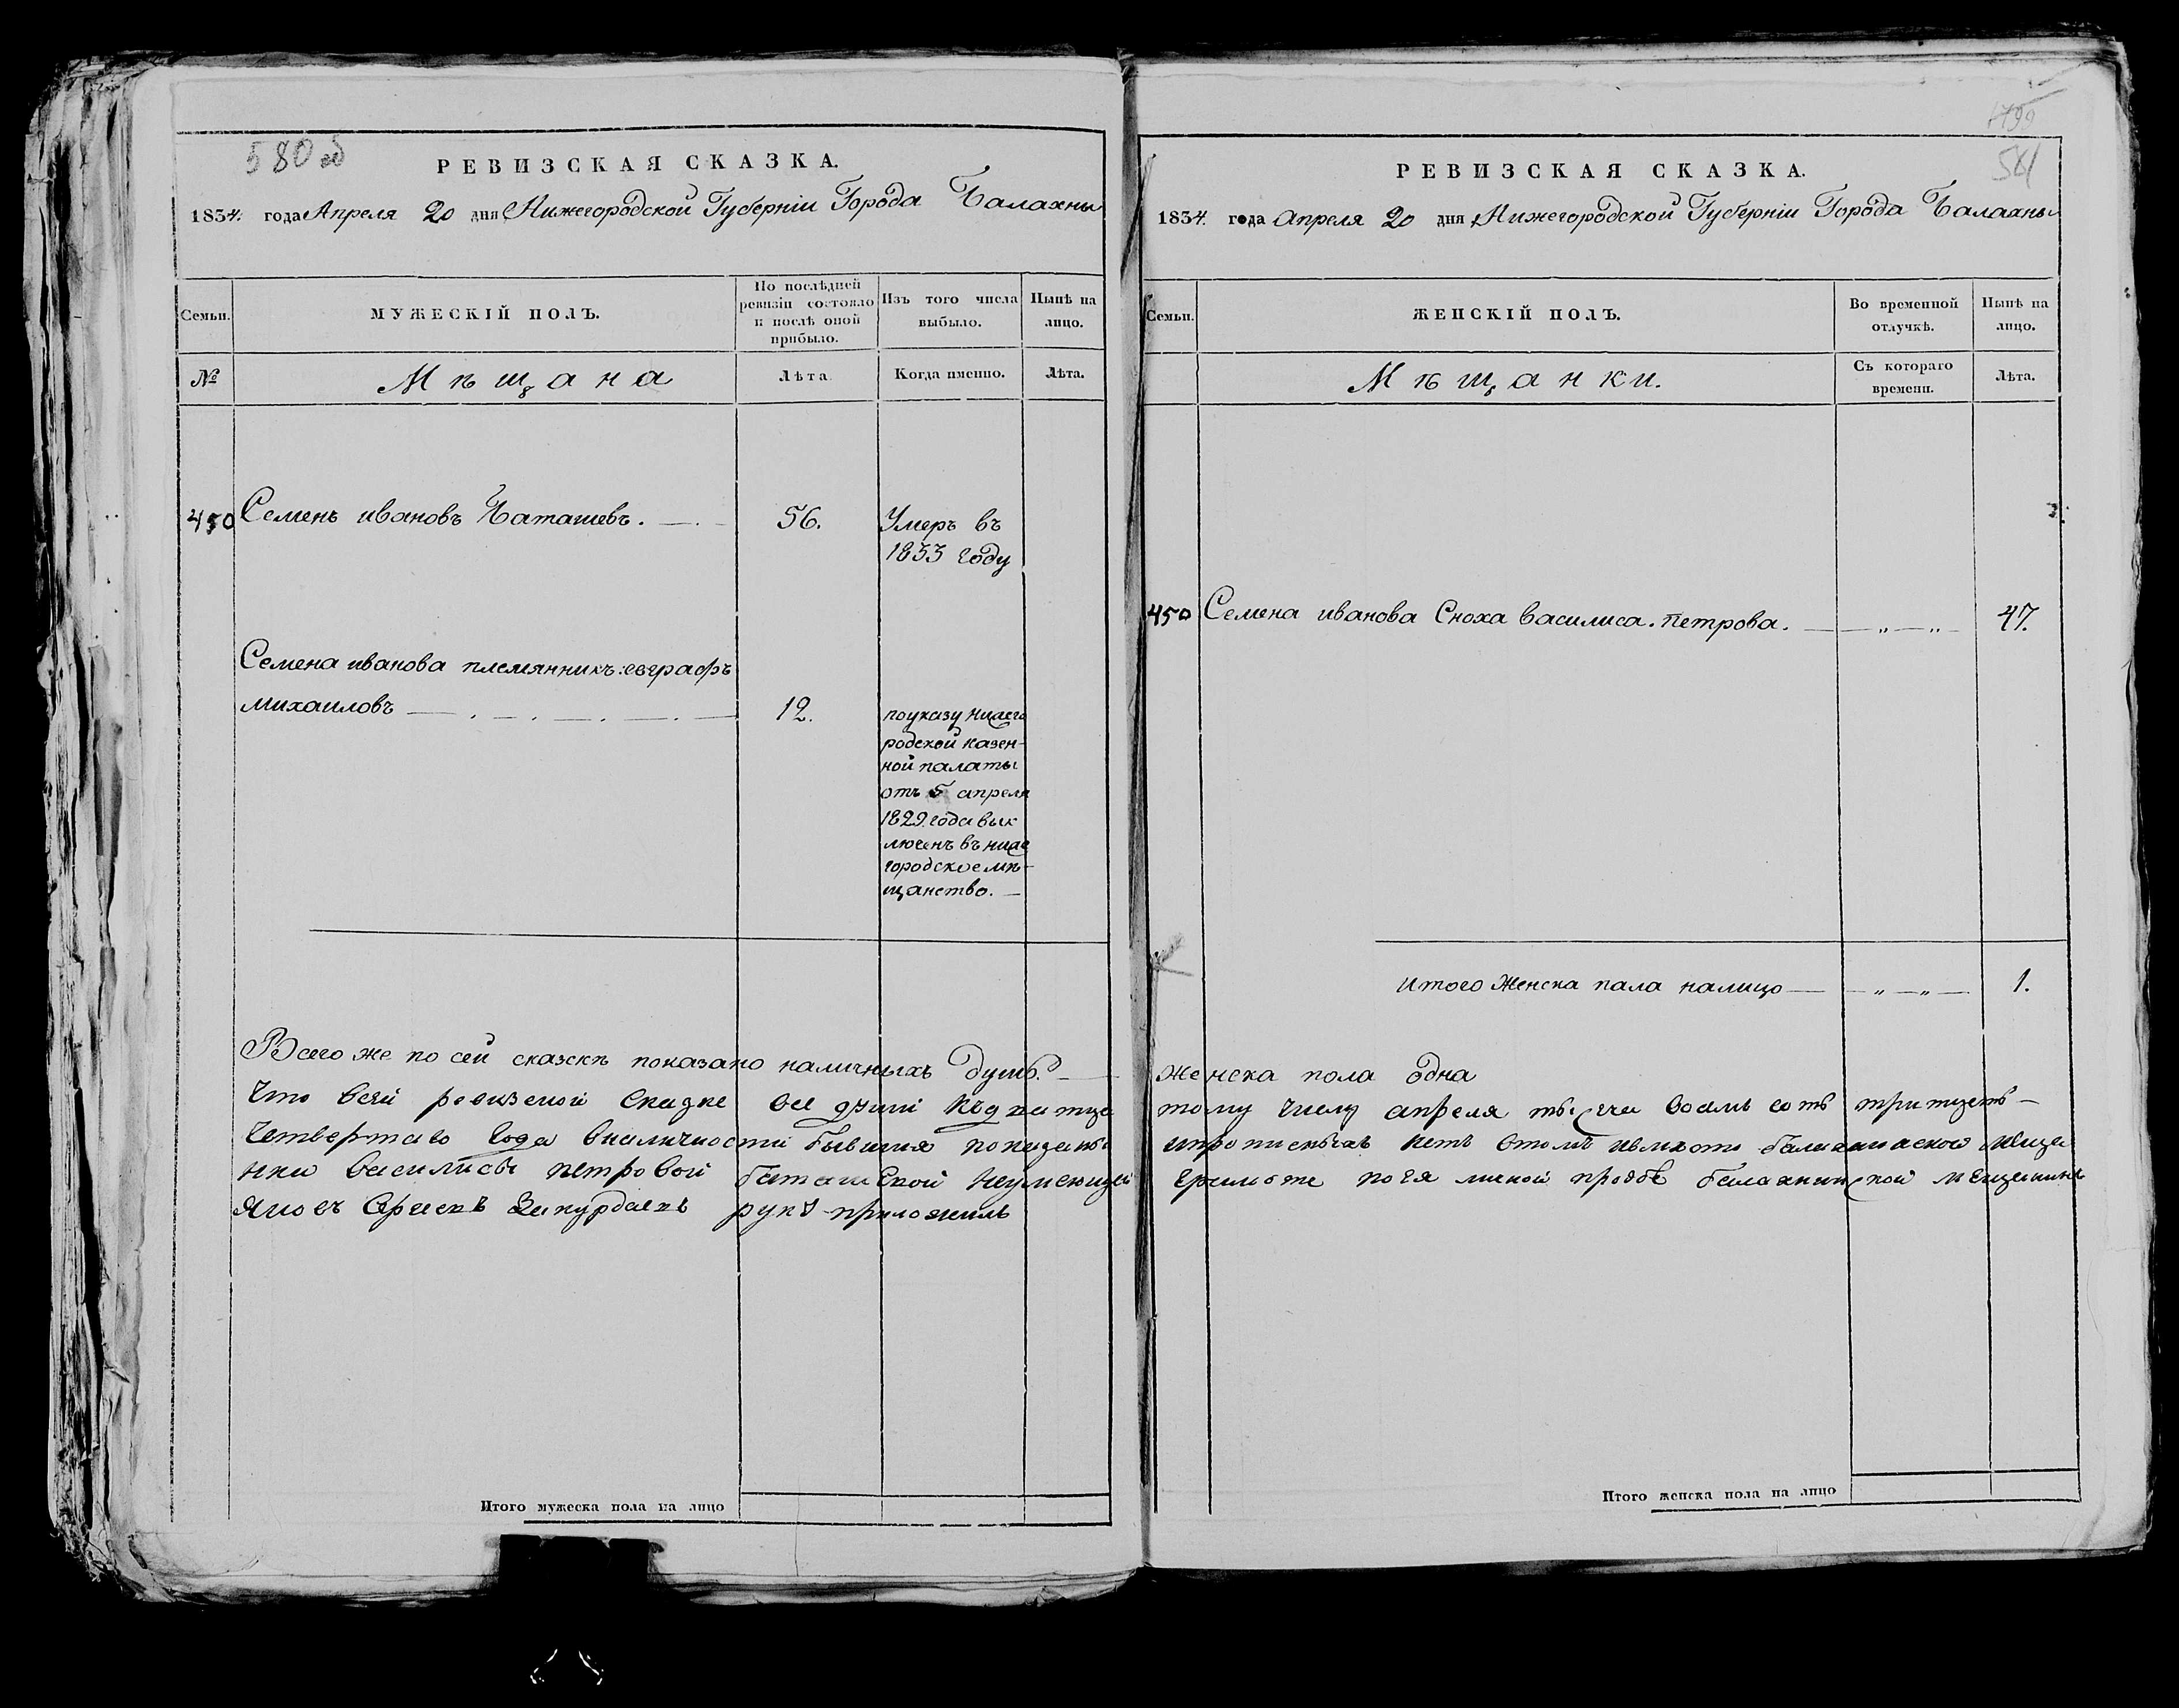 580 об
РЕВИЗСКАЯ СКАЗКА.
1834. года Апреля 20 дня Нижегородской Губерніи Города Балахны
Семьи.
МУЖЕСКІЙ ПОЛЪ.
По послѣдней
ревизіи состояло
и послѣ оной
прибыло.
Изъ того числа
выбыло.
Нынѣ на
лицо.
№
Мѣщана
Лѣта.
Когда именно.
Лѣта.
450 Семенъ ивановъ Баташевъ. 56. Умеръ въ
1833 году
Семена иванова племянникъ: евграфъ
михаиловъ 12.
по указу нижего
родской казен-
ной палаты
отъ 5 апреля
1829 года вык
люченъ въ ниже
городское мѣ-
щанство.
Всего же по сей сказскѣ показано наличныхъ душъ.
Что всей ревизской сказке все души къдватцо
Четвертаго года вналичности бывшия показаны
нки василисы петровой баташевой неумеющей
руку приложилъ
Итого мужеска пола на лицо
581
РЕВИЗСКАЯ СКАЗКА.
1834. года апреля 20 дня Нижегородской Губерніи Города Балахны
Семьи.
ЖЕНСКІЙ ПОЛЪ.
Во временной
отлучкѣ.
Нынѣ на
лицо.
Мѣщанки.
Съ котораго
времени.
Лѣта.
450 Семена иванова Сноха василиса. петрова. — „ — „ — 47.
итого Женска пала налицо — „ — „ — 1.
Женска пола одна
тому числу апреля тысеча восемь сотъ тритцеть-
ипрописныхъ нетъ втомъ вместо балахнинской мещa
грамоте поея личной прозбе балахнинской мещенинъ
Итого женска пола на лицо